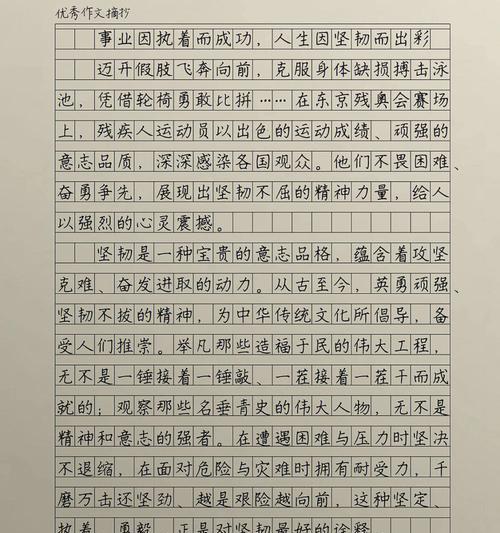 优秀作文摘抄
事业因执着而成功，人生因坚韧而出彩
迈开假肢飞奔向前，克服身体缺损搏击泳
池，凭借轮椅勇敢比拼……在东京残奥会赛场
上，残疾人运动员以出色的运动成绩、顽强的
意志品质，深深感染各国观众。他们不畏困难、
奋勇争先，展现出坚韧不屈的精神力量，给人
以强烈的心灵震撼。
坚韧是一种宝贵的意志品格，蕴含着攻坚
克难、奋发进取的动力。从古至今，英勇顽强、
坚韧不拔的精神，为中华传统文化所倡导，备
受人们推崇。举凡那些造福于民的伟大工程，
无不是一锤接着一锤敲、一茬接着一茬干而成
就的；观察那些名垂青史的伟大人物，无不是
精神和意志的强者。在遭遇困难与压力时坚决
不退缩，在面对危险与灾难时拥有耐受力，千
磨万击还坚劲、越是艰险越向前，这种坚定、
执着、勇毅，正是对坚韧最好的诠释。